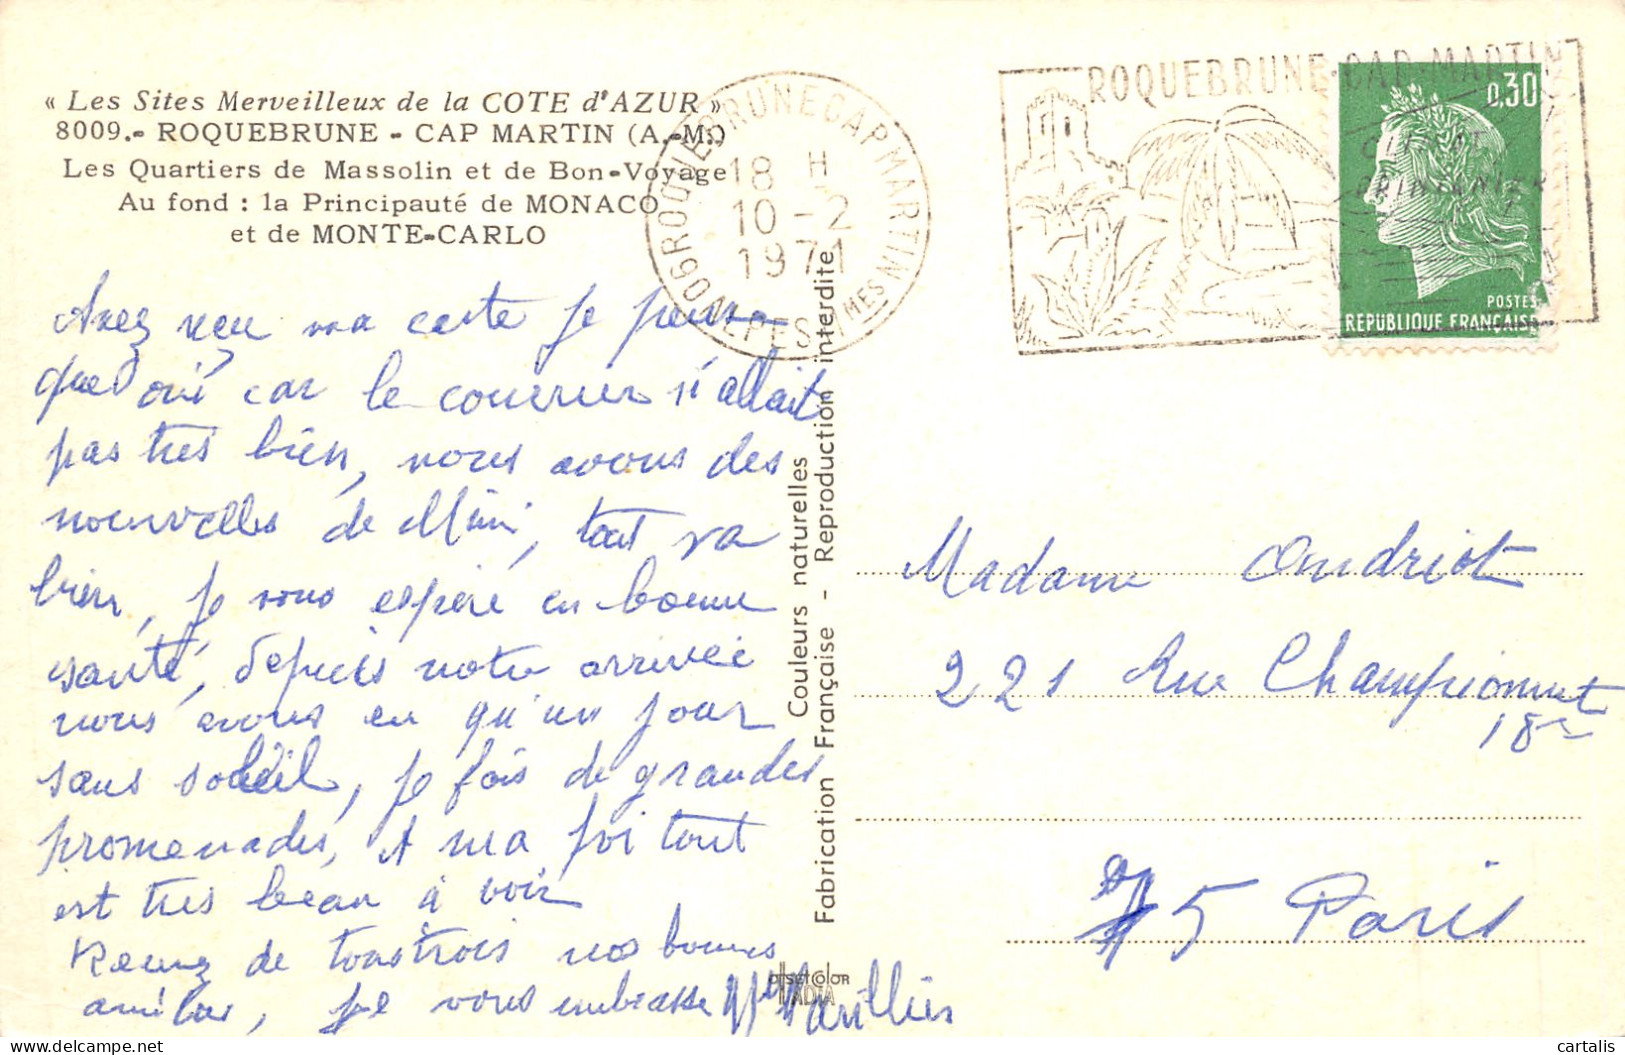 « Les Sites Merveilleux de la COTE d'AZUR »
8009.- ROQUEBRUNE - CAP MARTIN (A.-M.)
Les Quartiers de Massolin et de Bon-Voyage
Au fond : la Principauté de MONACO
et de MONTE-CARLO
Avez reçu ma carte je pense
que oui car le courrier n'allait
pas très bien, nous avons des
nouvelles de Mimi, tout va
bien, je vous espère en bonne
santé, depuis notre arrivée
nous avons eu qu'un jour
sans soleil, je fais de grandes
promenades, et ma foi tout
est très beau à voir
Recevez de tous trois nos bonnes
amitiés, je vous embrasse
06 ROQUEBRUNE CAP MARTIN
ALPES MMES
18 H
10 - 2
1971
ROQUEBRUNE-CAP MARTIN
CLIMAT
PRINTANIER
0,30
POSTES
REPUBLIQUE FRANÇAISE
Couleurs naturelles
Fabrication Française - Reproduction interdite
Madame Andriot
221 Rue Championnet
18e
75 Paris
offsetcolor
cartalis